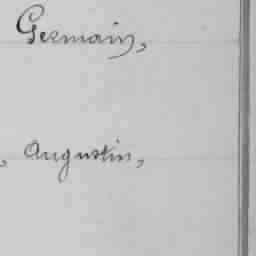 Germain,
, Augustin,